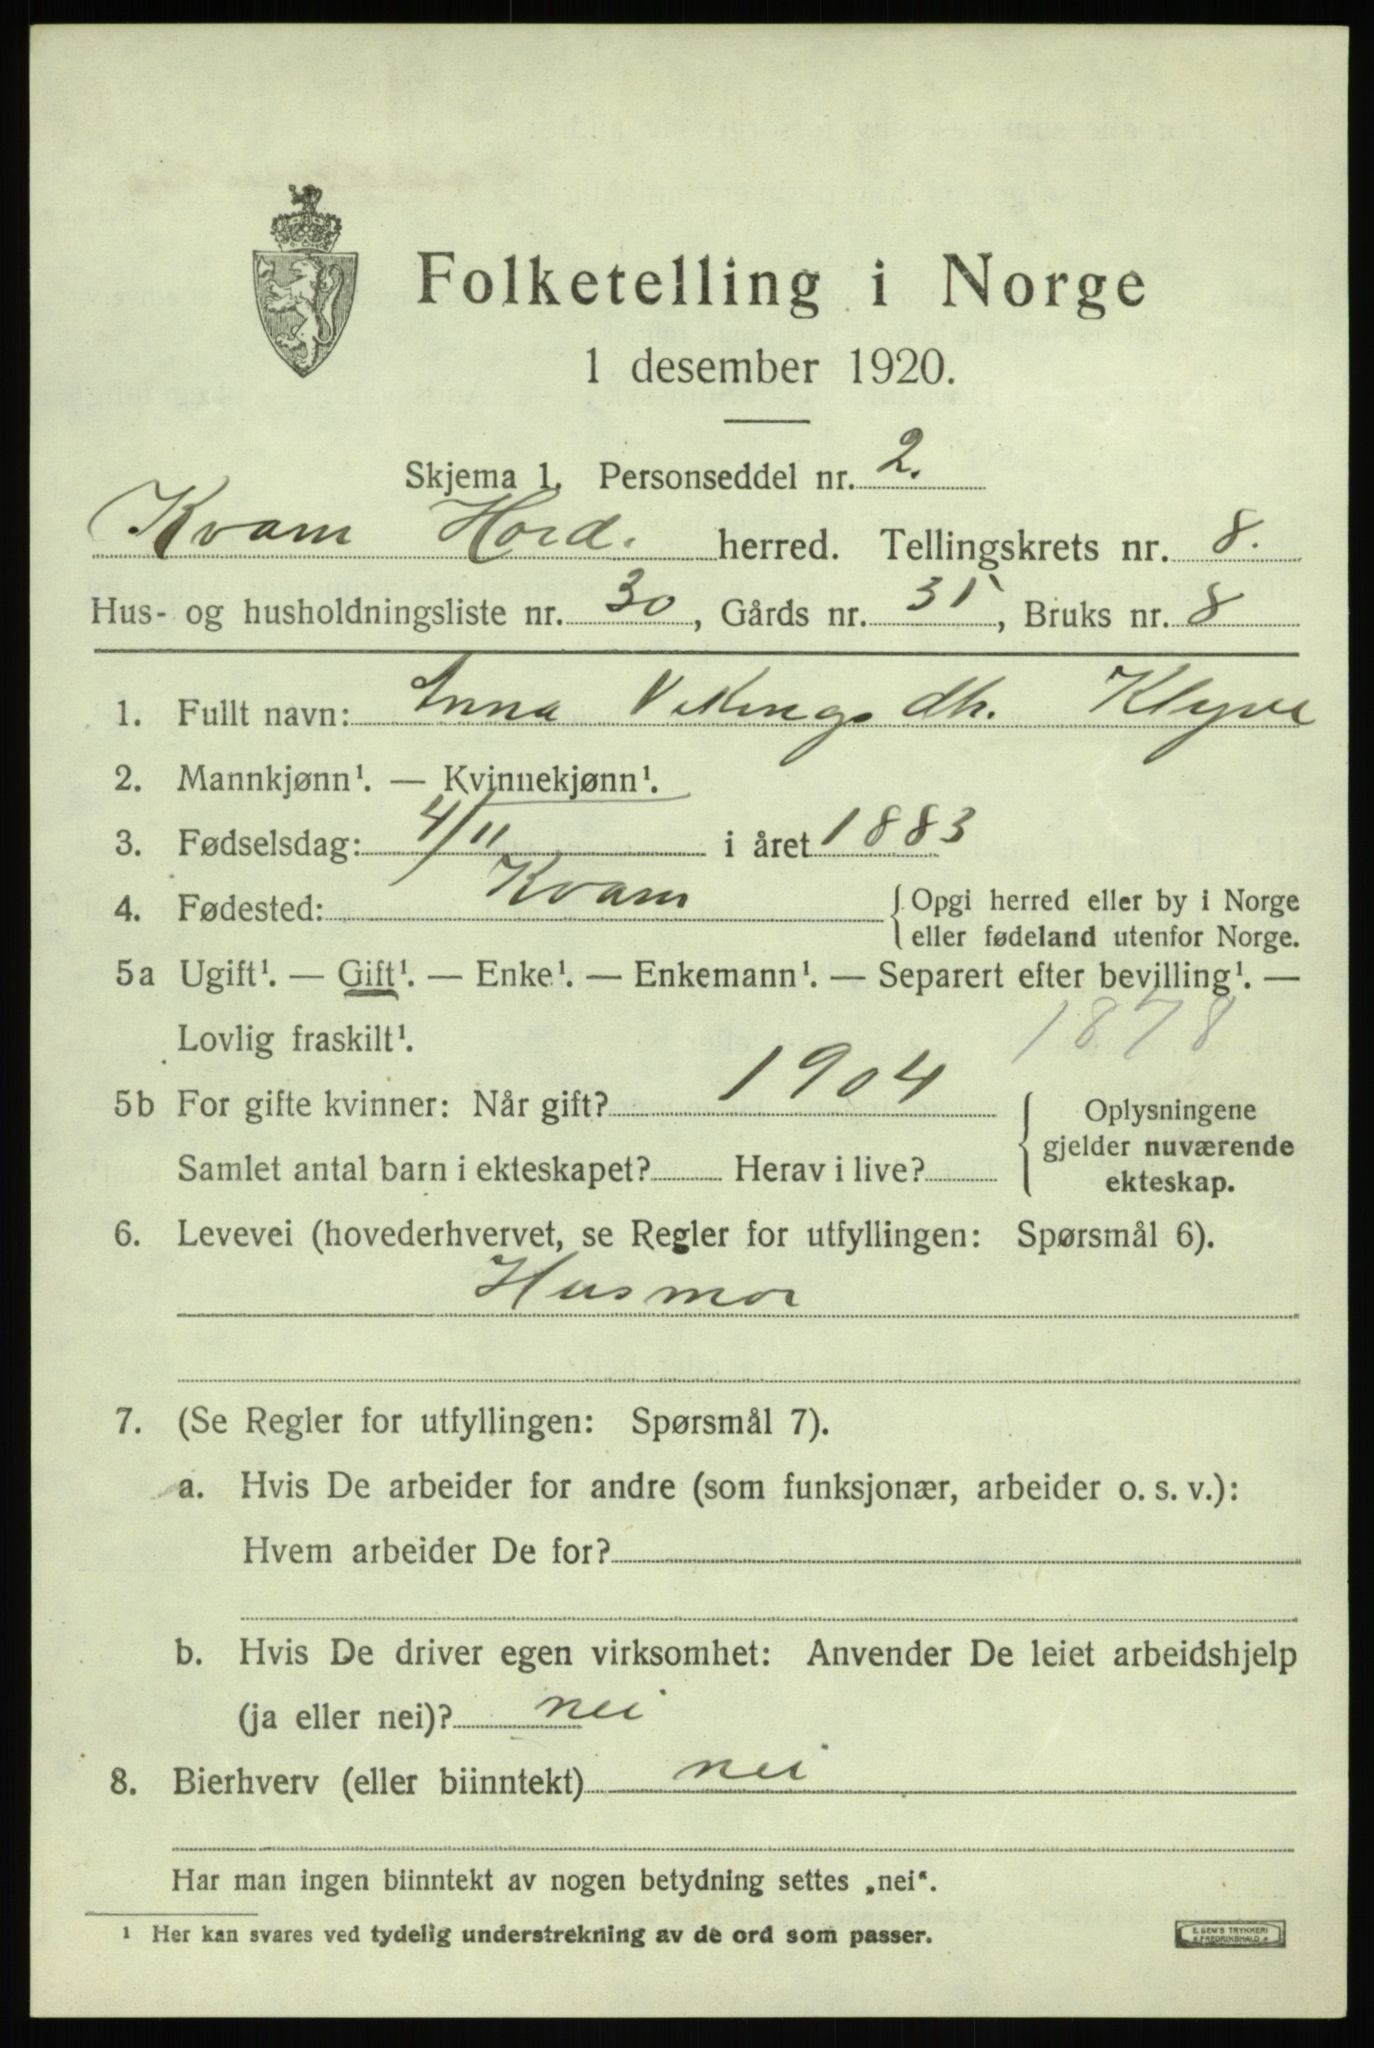 Folketelling i Norge
1 desember 1920.
Skjema 1. Personseddel nr. 2.
Kvam Hord. herred. Tellingskrets nr. 8.
Hus- og husholdningsliste nr. 30, Gårds nr. 35, Bruks nr. 8
1. Fullt navn: Anna Vikingsdh. Klyve
2. Mannkjønn¹. — Kvinnekjønn¹.
3. Fødselsdag: 4/11 i året 1883
4. Fødested: Kvam {Opgi herred eller by i Norge
eller fødeland utenfor Norge.
5a Ugift¹. — Gift¹. — Enke¹. — Enkemann¹. — Separert efter bevilling¹. —
Lovlig fraskilt¹. 1878
5b For gifte kvinner: Når gift? 1904 { Oplysningene
gjelder nuværende
Samlet antal barn i ekteskapet? Herav i live?
ekteskap.
6. Levevei (hovederhvervet, se Regler for utfyllingen: Spørsmål 6).
Husmor
7. (Se Regler for utfyllingen: Spørsmål 7).
a. Hvis De arbeider for andre (som funksjonær, arbeider o. s. v.):
Hvem arbeider De for?
b. Hvis De driver egen virksomhet: Anvender De leiet arbeidshjelp
(ja eller nei)? nei
8. Bierhverv (eller biinntekt) nei
Har man ingen biinntekt av nogen betydning settes „nei“.
¹ Her kan svares ved tydelig understrekning av de ord som passer.
E. SEM'S TRYKKERI
FREDRIKSHALD